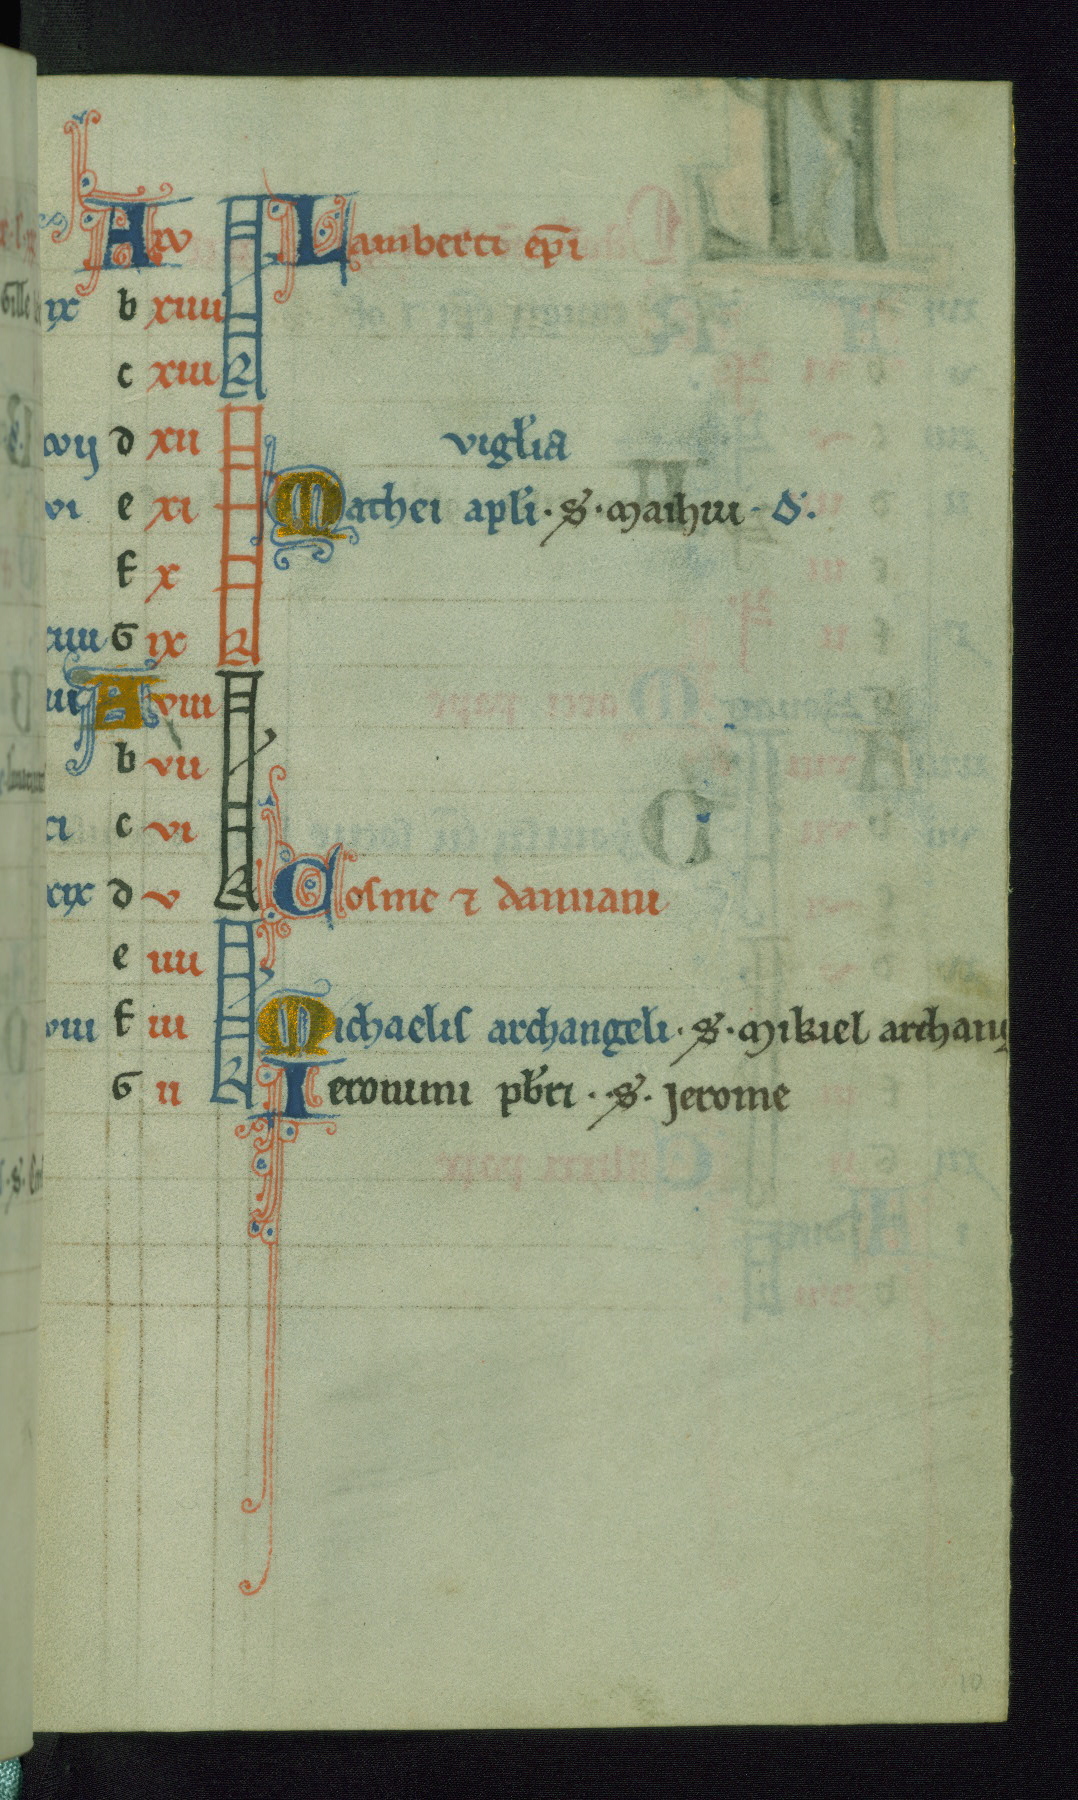 A xv Lamberti ep̄i
ix b xiiii
c xiii
xvij d xii vigl'ia
vi e xi Mathei apl'i · s̄ · mathiu · d'.
f x
xiiii G ix
iii A viii
b vii
xi c vi
xix d v Cosme ⁊ damiani
e iiii
viii f iii Michaelis archangeli · s̄ · mikiel archang
G ii Ieronimi pb̄ri · s̄ · jerome
10